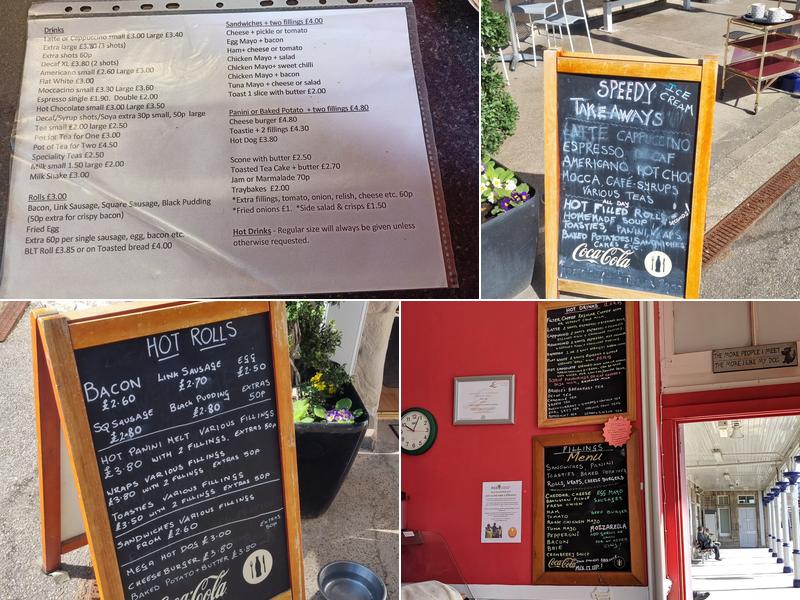 Drinks
Latte or Cappuccino small £3.00 Large £3.40
Extra large £3.80 (3 shots)
Extra shots 60p
Decaf XL £3.80 (2 shots)
Americano small £2.60 Large £3.00
Flat White £3.00
Moccacino small £3.30 Large £3.60
Espresso single £1.90. Double £2.00
Hot Chocolate small £3.00 Large £3.50
Decaf/Syrup shots/Soya extra 30p small, 50p large
Tea small £2.00 large £2.50
Pot of Tea for One £3.00
Pot of Tea for Two £4.50
Speciality Teas £2.50
Milk small 1.50 large £2.00
Milk Shake £3.00
Rolls £3.00
Bacon, Link Sausage, Square Sausage, Black Pudding
(50p extra for crispy bacon)
Fried Egg
Extra 60p per single sausage, egg, bacon etc.
BLT Roll £3.85 or on Toasted bread £4.00
Sandwiches + two fillings £4.00
Cheese + pickle or tomato
Egg Mayo + bacon
Ham+ cheese or tomato
Chicken Mayo + salad
Chicken Mayo+ sweet chilli
Chicken Mayo + bacon
Tuna Mayo + cheese or salad
Toast 1 slice with butter £2.00
Panini or Baked Potato + two fillings £4.80
Cheese burger £4.80
Toastie + 2 fillings £4.30
Hot Dog £3.80
Scone with butter £2.50
Toasted Tea Cake + butter £2.70
Jam or Marmalade 70p
Traybakes £2.00
*Extra fillings, tomato, onion, relish, cheese etc. 60p
*Fried onions £1. *Side salad & crisps £1.50
Hot Drinks - Regular size will always be given unless
otherwise requested.
SPEEDY ICE
CREAM
TAKE AWAYS
LATTE CAPPUCCINO
ESPRESSO DECAF
AMERICANO, HOT CHOC
MOCCA, CAFE-SYRUPS
VARIOUS TEAS
ALL DAY
HOT FILLED ROLLS
HOMEMADE SOUP
TOASTIES, PANINI, WRAPS
BAKED POTATOES SANDWICHES
CAKES ETC
Coca-Cola
HOT ROLLS
BACON LINK SAUSAGE EGG
£2.60 £2.70 £2.50
SQ SAUSAGE BLACK PUDDING EXTRAS
£2.80 £2.80 50P
HOT PANINI MELT VARIOUS FILLINGS
£3.80 WITH 2 FILLINGS. EXTRAS 50P
WRAPS VARIOUS FILLINGS
£3.80 WITH 2 FILLINGS EXTRAS 50P
TOASTIES VARIOUS FILLINGS
£3.50 WITH 2 FILLINGS EXTRAS 50P
SANDWICHES VARIOUS FILLINGS
FROM £2.60 EXTRAS 50P
MEGA HOT DOG £3.00
CHEESEBURGER £3.80
BAKED POTATO + BUTTER £3.80
Coca-Cola
HOT DRINKS
FILLINGS
Menu
SANDWICHES, PANINI
TOASTIES BAKED POTATOES
ROLLS, WRAPS, CHEESE BURGERS
CHEDDAR, CHEESE EGG MAYO
BRANSTON PICKLE SAUSAGES
FRESH ONION
HAM BEEF BURGER
TOMATO
ROAST CHICKEN MAYO
TUNA MAYO MOZZARELLA
PEPPERONI
BACON
BRIE
CRANBERRY SAUCE
Coca-Cola
THE MORE PEOPLE I MEET
THE MORE I LIKE MY DOG